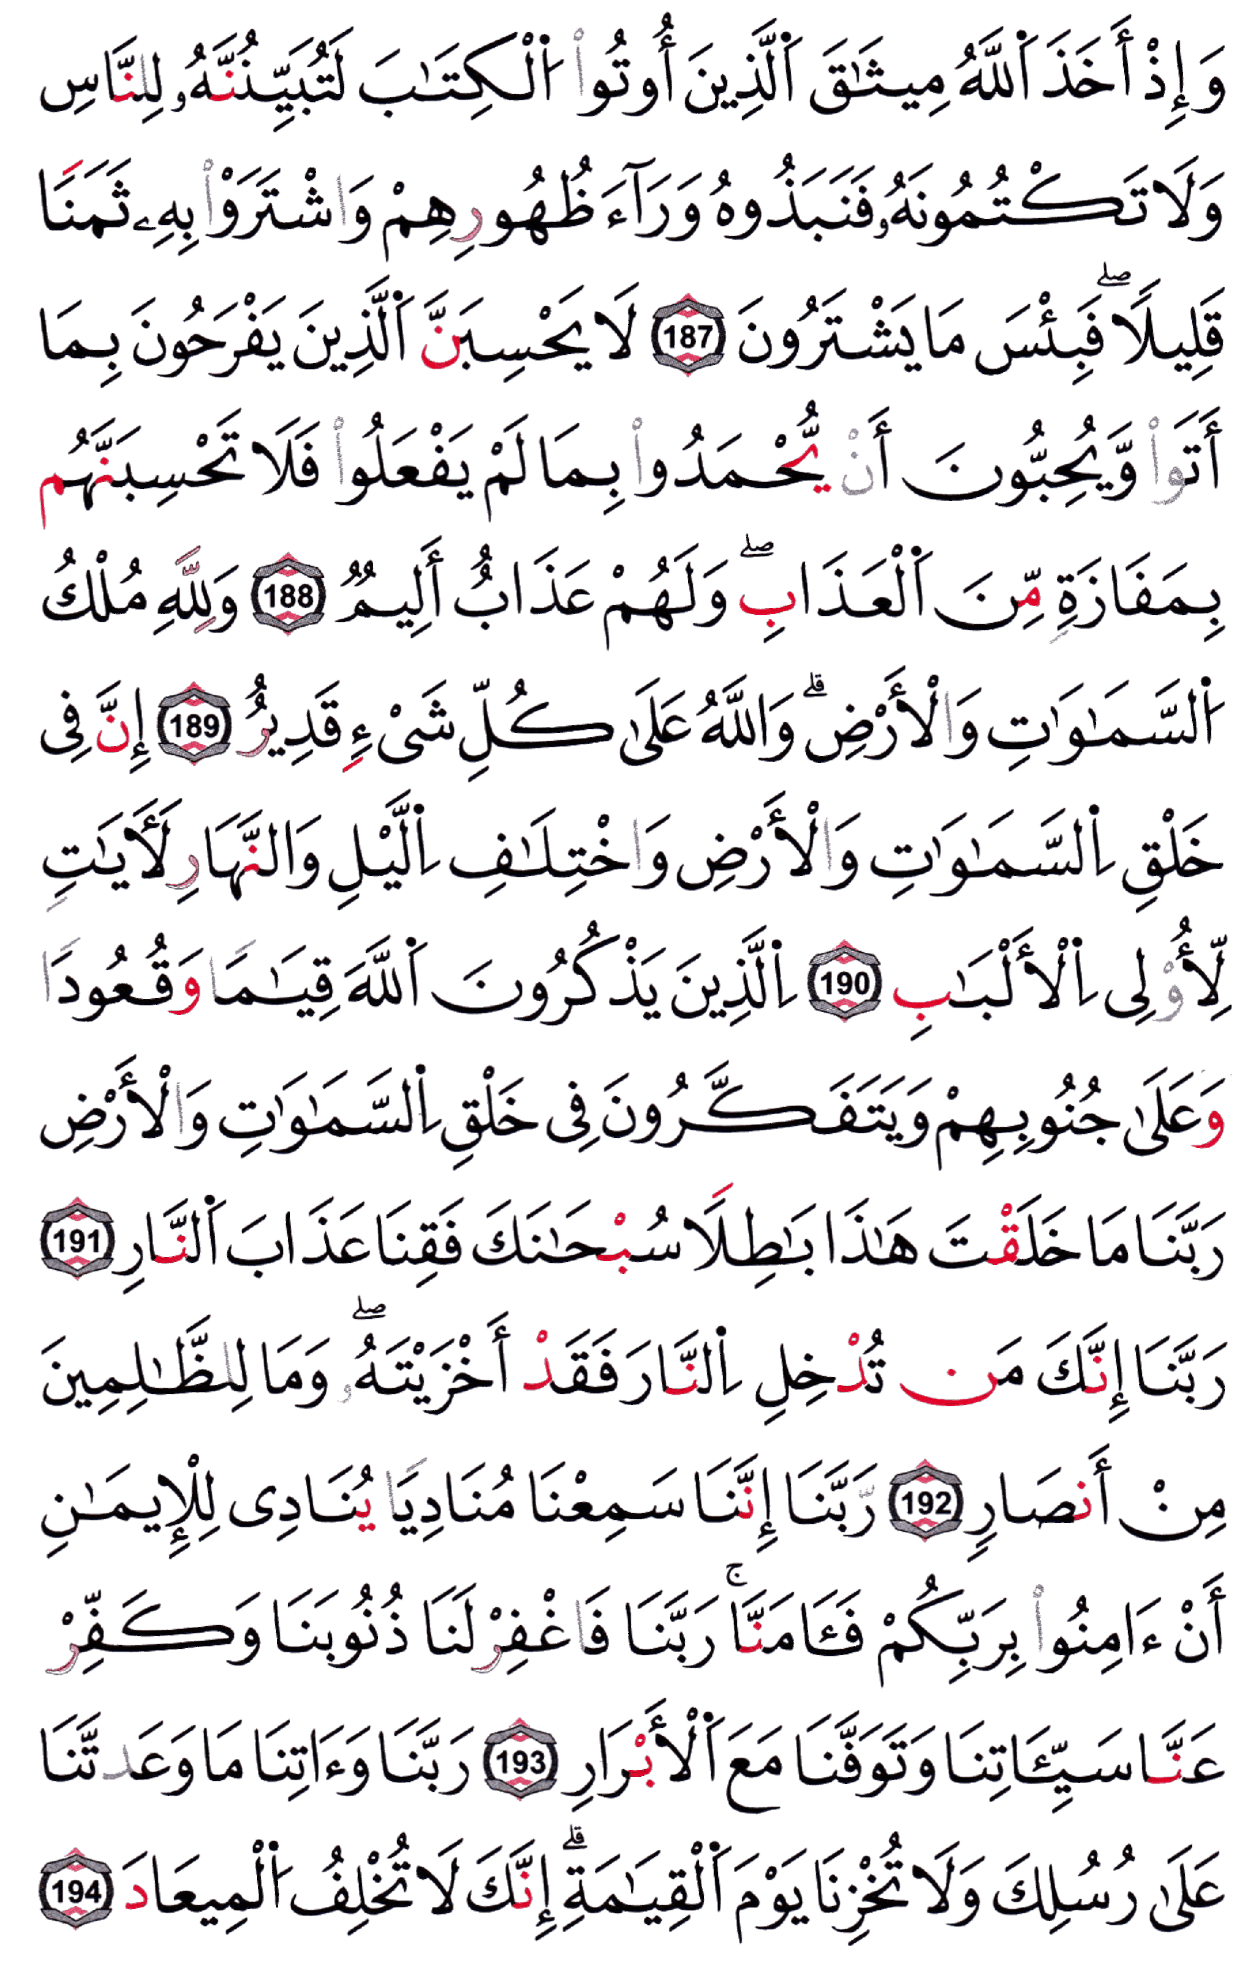 وَإِذْ أَخَذَ اَللَّهُ مِيثَٰقَ اَلَّذِينَ أُوتُوا۟ اُلْكِتَٰبَ لَتُبَيِّنُنَّهُۥ لِلنَّاسِ
وَلَا تَكْتُمُونَهُۥ فَنَبَذُوهُ وَرَآءَ ظُهُورِهِمْ وَاشْتَرَوْا۟ بِهِۦ ثَمَنًا
قَلِيلًا ۖ فَبِئْسَ مَا يَشْتَرُونَ 187 لَا يَحْسِبَنَّ اَلَّذِينَ يَفْرَحُونَ بِمَا
أَتَوا۟ وَّيُحِبُّونَ أَنْ يُّحْمَدُوا۟ بِمَا لَمْ يَفْعَلُوا۟ فَلَا تَحْسِبَنَّهُم
بِمَفَازَةٍ مِّنَ اَلْعَذَابِ ۖ وَلَهُمْ عَذَابٌ أَلِيمٌ 188 وَلِلَّهِ مُلْكُ
اُلسَّمَٰوَٰتِ وَالْأَرْضِ ۗ وَاللَّهُ عَلَىٰ كُلِّ شَىْءٍ قَدِيرٌ 189 إِنَّ فِى
خَلْقِ اِلسَّمَٰوَٰتِ وَالْأَرْضِ وَاخْتِلَٰفِ اِلَّيْلِ وَالنَّهَارِ لَأٓيَٰتٍ
لِّأُو۟لِى اِلْأَلْبَٰبِ 190 اِلَّذِينَ يَذْكُرُونَ اَللَّهَ قِيَٰمًا وَقُعُودًا
وَعَلَىٰ جُنُوبِهِمْ وَيَتَفَكَّرُونَ فِى خَلْقِ اِلسَّمَٰوَٰتِ وَالْأَرْضِ
رَبَّنَا مَا خَلَقْتَ هَٰذَا بَٰطِلًا سُبْحَٰنَكَ فَقِنَا عَذَابَ اَلنَّارِ 191
رَبَّنَا إِنَّكَ مَن تُدْخِلِ اِلنَّارَ فَقَدْ أَخْزَيْتَهُۥ ۖ وَمَا لِلظَّٰلِمِينَ
مِنْ أَنصَارٍ 192 رَّبَّنَا إِنَّنَا سَمِعْنَا مُنَادِيًا يُنَادِى لِلْإِيمَٰنِ
أَنْ ءَامِنُوا۟ بِرَبِّكُمْ فَـَٔامَنَّا ۚ رَبَّنَا فَاغْفِرْ لَنَا ذُنُوبَنَا وَكَفِّرْ
عَنَّا سَيِّـَٔاتِنَا وَتَوَفَّنَا مَعَ اَلْأَبْرَارِ 193 رَبَّنَا وَءَاتِنَا مَا وَعَدتَّنَا
عَلَىٰ رُسُلِكَ وَلَا تُخْزِنَا يَوْمَ اَلْقِيَٰمَةِ ۗ إِنَّكَ لَا تُخْلِفُ اُلْمِيعَادَ 194